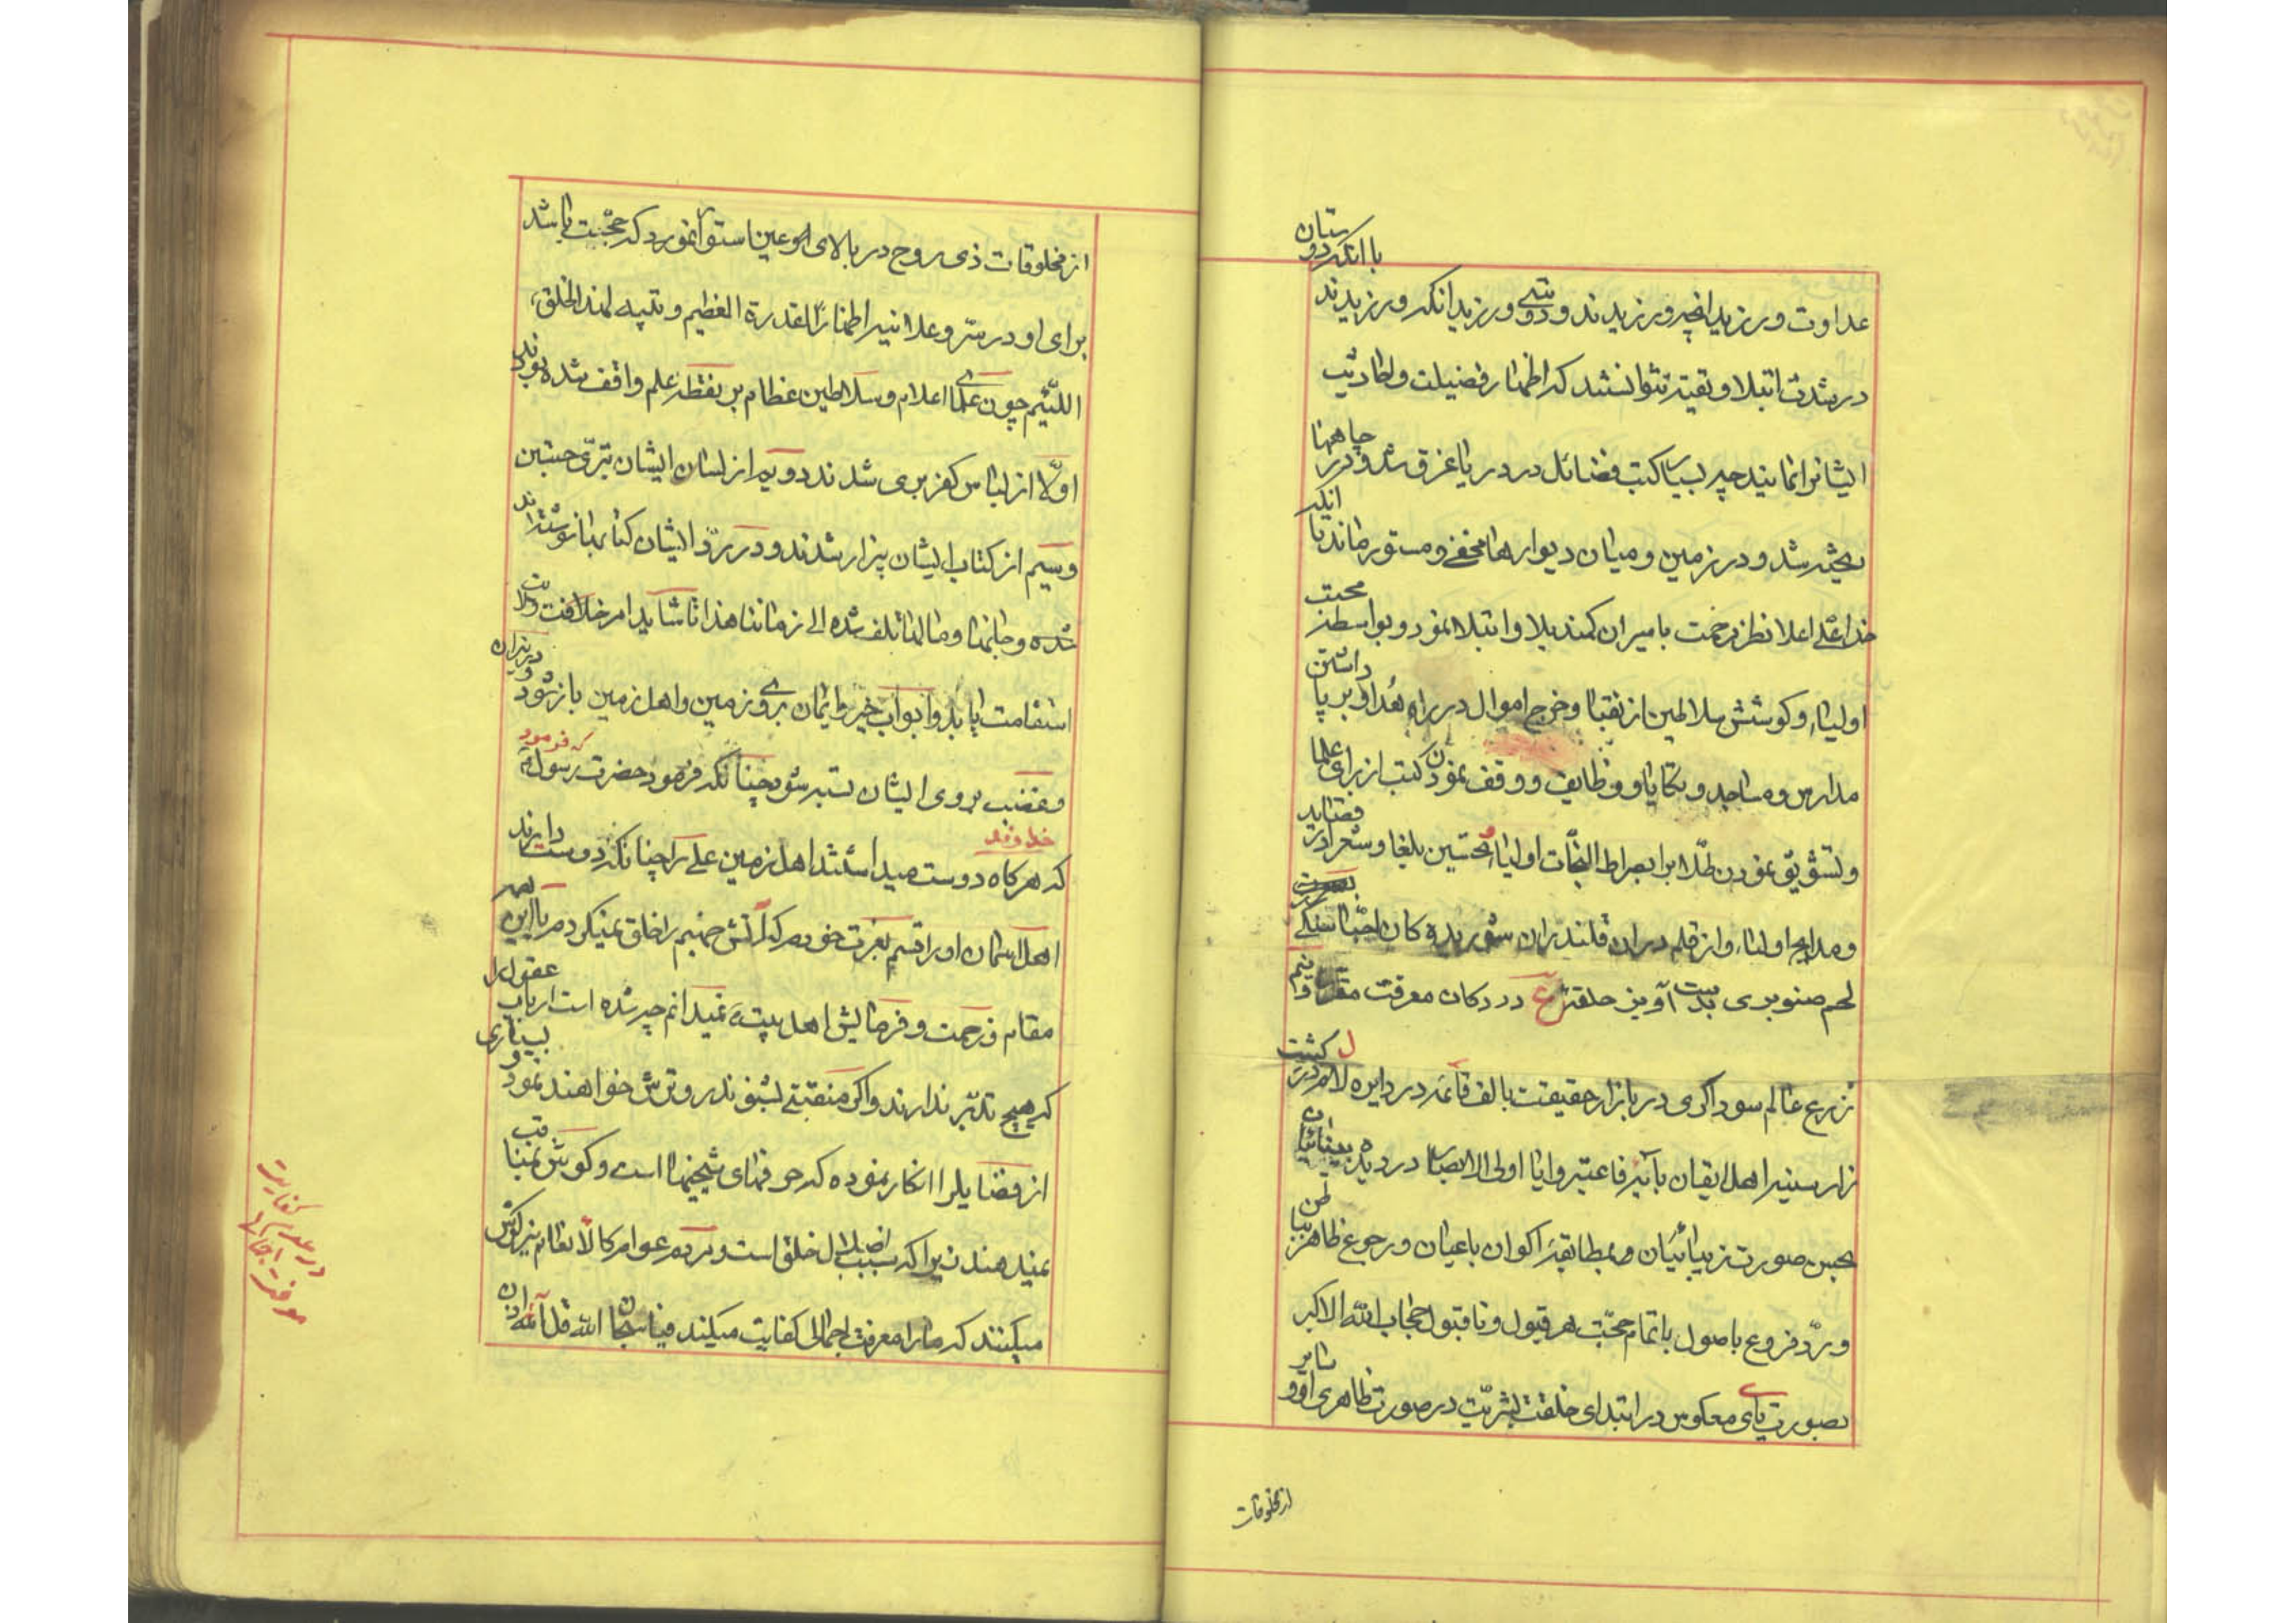 با آنکه دوستان
عداوت ورزید آنچه ورزیدند و دوستی ورزید آنکه ورزیدند
در شدت ابتلا و تقیّه نتوانستند که اظهار فضیلت و احادیث
ایشانرا نمایند چه بسیار کتب فضائل در دریا غرق شد و در چاهها
ریخته شد و در زمین و میان دیوارها مخفی و مستور ماند با آنکه
خداعلی اعلا نظر رحمت بامیران کمند بلا و ابتلا نمود و بواسطه محبت
اولیاء و کوشش سلاطین از نقبا و خرج اموال در راه هُدا و بر پا داشتن
مدارس و مساجد و تکایا و وظایف و وقف نمودن کتب از برای علما
و تشویق نمودن طلّاب را بصراط النجات اولیاء محسّنین بلغا و شعرا در قصاید
و مدایح اولیاء و از قلم دران قلندران شوریده کان احبّا
لحم صنوبری بدست آویز حلقه در دکان معرفت
زرع عالم سوداگری در بازار حقیقت بالف قائمه در دایره لا در کشت
زار سنیر اهل ایقان بآیه فاعتبروا یا اولی الابصار در دیده بینائیان
بحسن صورت زیبائیان و بمطابقه اکوان باعیان و رجوع ظاهر بباطن
و ردّ فروع باصول باتمام حجّت هر قبول و ناقبول حجاب الله الاکبر
بصورت یای معکوس در ابتدای خلقت بشریّت در صورت ظاهری او و سایر
از مخلوقات
از مخلوقات ذی روح در بالای عین استوار نمود که حجّت باشد
برای او در سرّ و علانیه اظهاراً لقدرة العظیم و تنبیه لهذا الخلق
اللئیم چون علمای اعلام و سلاطین عظام بر نقطه علم واقف شده بودند
اولّا از لباس کفر بری شدند دویم از لسان ایشان تبرّی جستین
و سیم از کتاب ایشان بیزار شدند و در ردّ ایشان کتابها نوشته‌اند
شده و جانها و مالها تلف شده الی زماننا هذا تا شاید امر خلافت و ولایت
استقامت یابد و ابواب خیر و ایمان بروی زمین و اهل زمین باز شود و در نیران
و غضب بروی ایشان بسته شود چنانکه فرمود حضرت رسول که فرمود
خداوند
که هرکاه دوست میداشتند اهل زمین علی را چنانکه دوست دارند
اهل آسمان او را قسم بعزت خودم که آتش جهنم را خلق نمیکردم با این همه
مقام و زحمت و فرمایش اهل بیت نمیدانم چه شده است ارباب عقول را
که هیچ تدبّر ندارند و اگر منقبتی بشنوند رو ترش خواهند نمود و بسیاری
از فضایل را انکار نموده که حرفهای شیخیها است و کوش بمناقب
نمیدهند زیرا که سبب اضلال خلق است و مردم عوام کالأنعام نیز کوش
میکنند که ما را معرفت اجمالی کفایت میکند فیا سبحان الله قل آلله اذن
در عدم کفایت
معرفت اجمالی